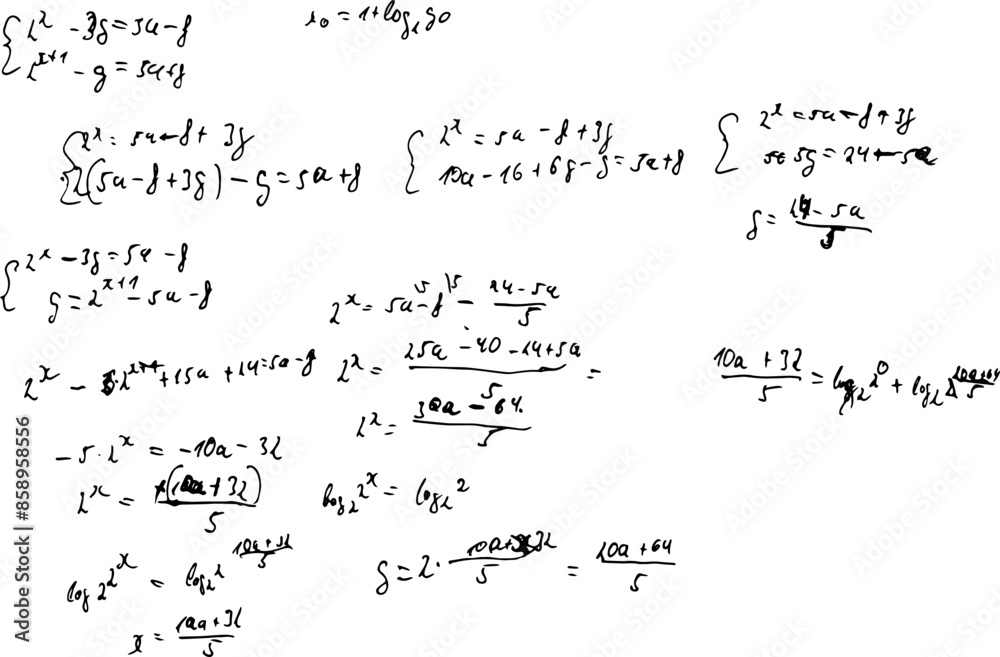 2^x - 3g = 3a - 8
x_0 = 1 + log_2 g_0
2^{x+1} - g = 5a + 8
2^x = 5a - 8 + 3g
2(5a - 8 + 3g) - g = 5a + 8
2^x = 5a - 8 + 3g
10a - 16 + 6g - g = 5a + 8
2^x = 5a - 8 + 3g
5g = 24 - 5a
g = (24 - 5a)/5
2^x - 3g = 5a - 8
g = 2^{x+1} - 5a - 8
2^x = 5a - 8 - (24 - 5a)/5
2^x - 6·2^{x+1} + 15a + 24 = 5a - 8
2^x = (25a - 40 - 24 + 5a)/5 =
(10a + 32)/5 = log_2 2^0 + log_2 (20a + 64)/5
2^x = (30a - 64)/5
-5·2^x = -10a - 32
2^x = (10a + 32)/5
log_2 2^x = log_2 2
log 2^x = log_2 2^{(10a + 32)/5}
g = 2·(10a + 32)/5 = (20a + 64)/5
x = (10a + 32)/5
Adobe Stock | #858958556